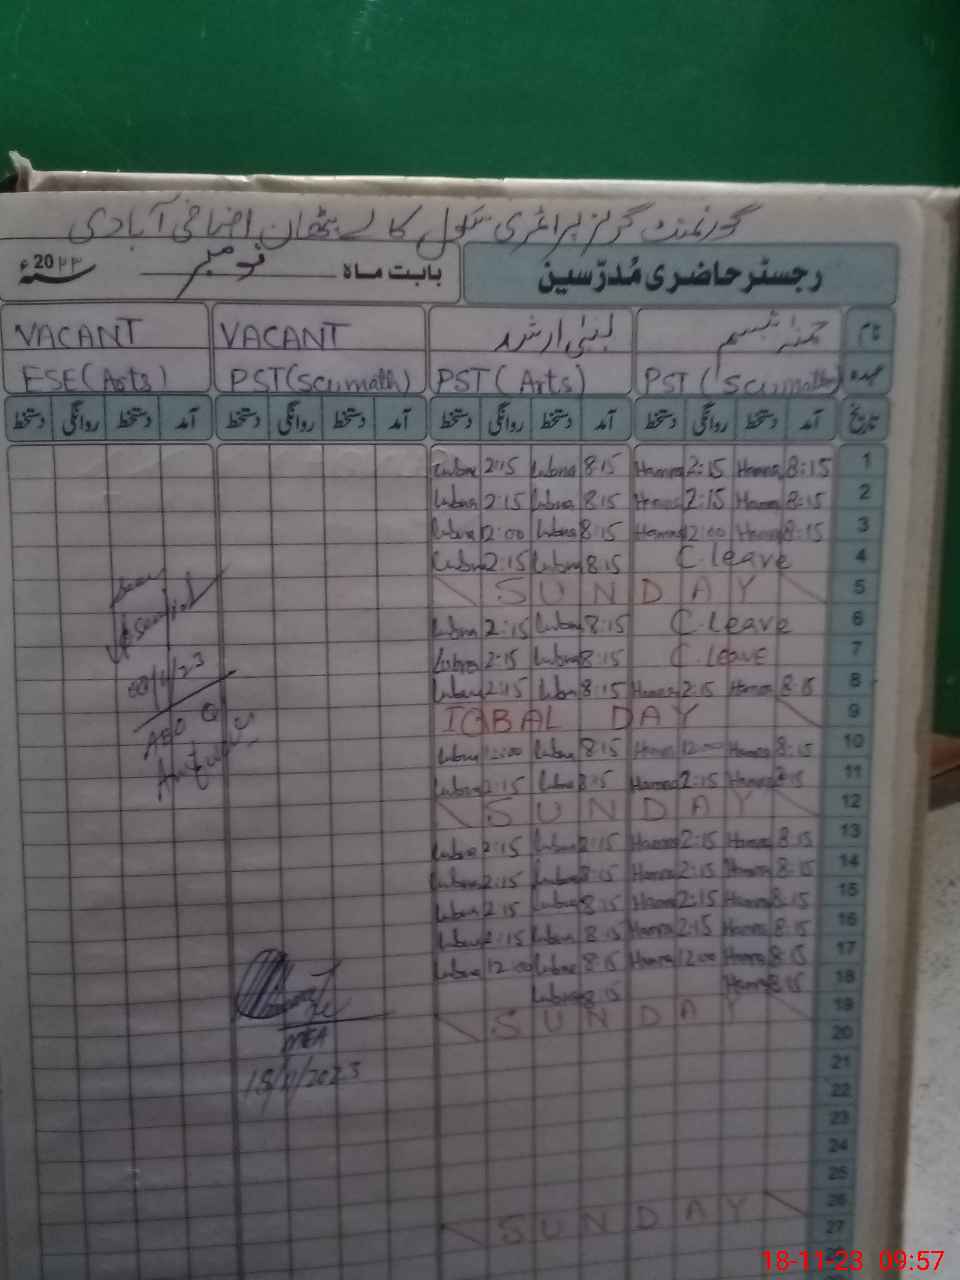 گورنمنٹ گرلز پرائمری سکول کالے پٹھان اضافی آبادی
رجسٹر حاضری مُدرّسین بابت ماہ نومبر سنہ 20۲۳ء
نام حمنہ تبسم لبنیٰ ارشد VACANT VACANT
عہدہ PST (Sci/math) PST (Arts) PST (Sci/math) ESE (Arts)
تاریخ آمد دستخط روانگی دستخط آمد دستخط روانگی دستخط آمد دستخط روانگی دستخط آمد دستخط روانگی دستخط
1 8:15 Hamna 2:15 Hamna 8:15 Lubna 2:15 Lubna
2 8:15 Hamna 2:15 Hamna 8:15 Lubna 2:15 Lubna
3 8:15 Hamna 12:00 Hamna 8:15 Lubna 12:00 Lubna
4 C.leave 8:15 Lubna 2:15 Lubna
5 SUNDAY
6 C.leave 8:15 Lubna 2:15 Lubna
7 C.leave 8:15 Lubna 2:15 Lubna
8 8:15 Hamna 2:15 Hamna 8:15 Lubna 2:15 Lubna
9 IQBAL DAY
10 8:15 Hamna 12:00 Hamna 8:15 Lubna 12:00 Lubna
11 8:15 Hamna 2:15 Hamna 8:15 Lubna 2:15 Lubna
12 SUNDAY
13 8:15 Hamna 2:15 Hamna 2:15 Lubna 2:15 Lubna
14 8:15 Hamna 2:15 Hamna 8:15 Lubna 2:15 Lubna
15 8:15 Hamna 2:15 Hamna 8:15 Lubna 2:15 Lubna
16 8:15 Hamna 2:15 Hamna 8:15 Lubna 2:15 Lubna
17 8:15 Hamna 12:00 Hamna 8:15 Lubna 12:00 Lubna
18 8:15 Hamna 8:15 Lubna
19 SUNDAY
20
21
22
23
24
25
26 SUNDAY
27
08/11/23
AEO
MEA
15/11/2023
18-11-23 09:57